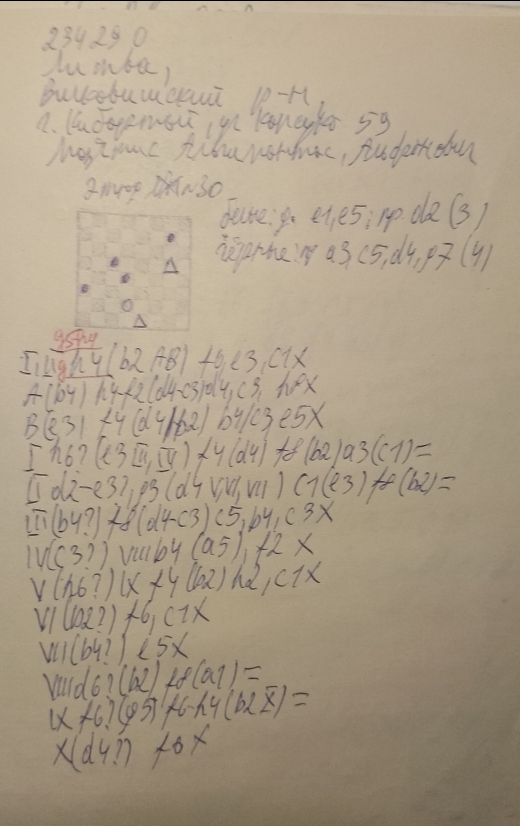 234290
Литва,
Вилковишский р-н,
г. Кибартай, ул 59
Альгимантас,
Этюд №30
белые: д. e1, e5; пр. d2 (3)
чёрные: пр a3, c5, d4, g7 (4)
g5-h4
h4 (b2 AB) f6, e3, c1X
A (b4) h4-f2 (d4-c3) d4, c3,
B (e3) f4 (d4/b2) b4/c3 e5X
I h6? (e3 III, IV) f4 (d4) f8 (b2) a3 (c1) =
II d2-e3?, g3 (d4 V, VI, VII) c1 (e3) f8 (b2) =
III (b4?) f8 (d4-c3) c5, b4, c3X
IV (c3?) VIII b4 (a5), f2 X
V (h6?) IX f4 (b2) h2, c1X
VI (b2?) f6, c1X
VII (b4?) e5X
VIII d6? (b2) f8 (a1) =
IX f6? (g5) f6-h4 (b2 X) =
X (d4?) f8X